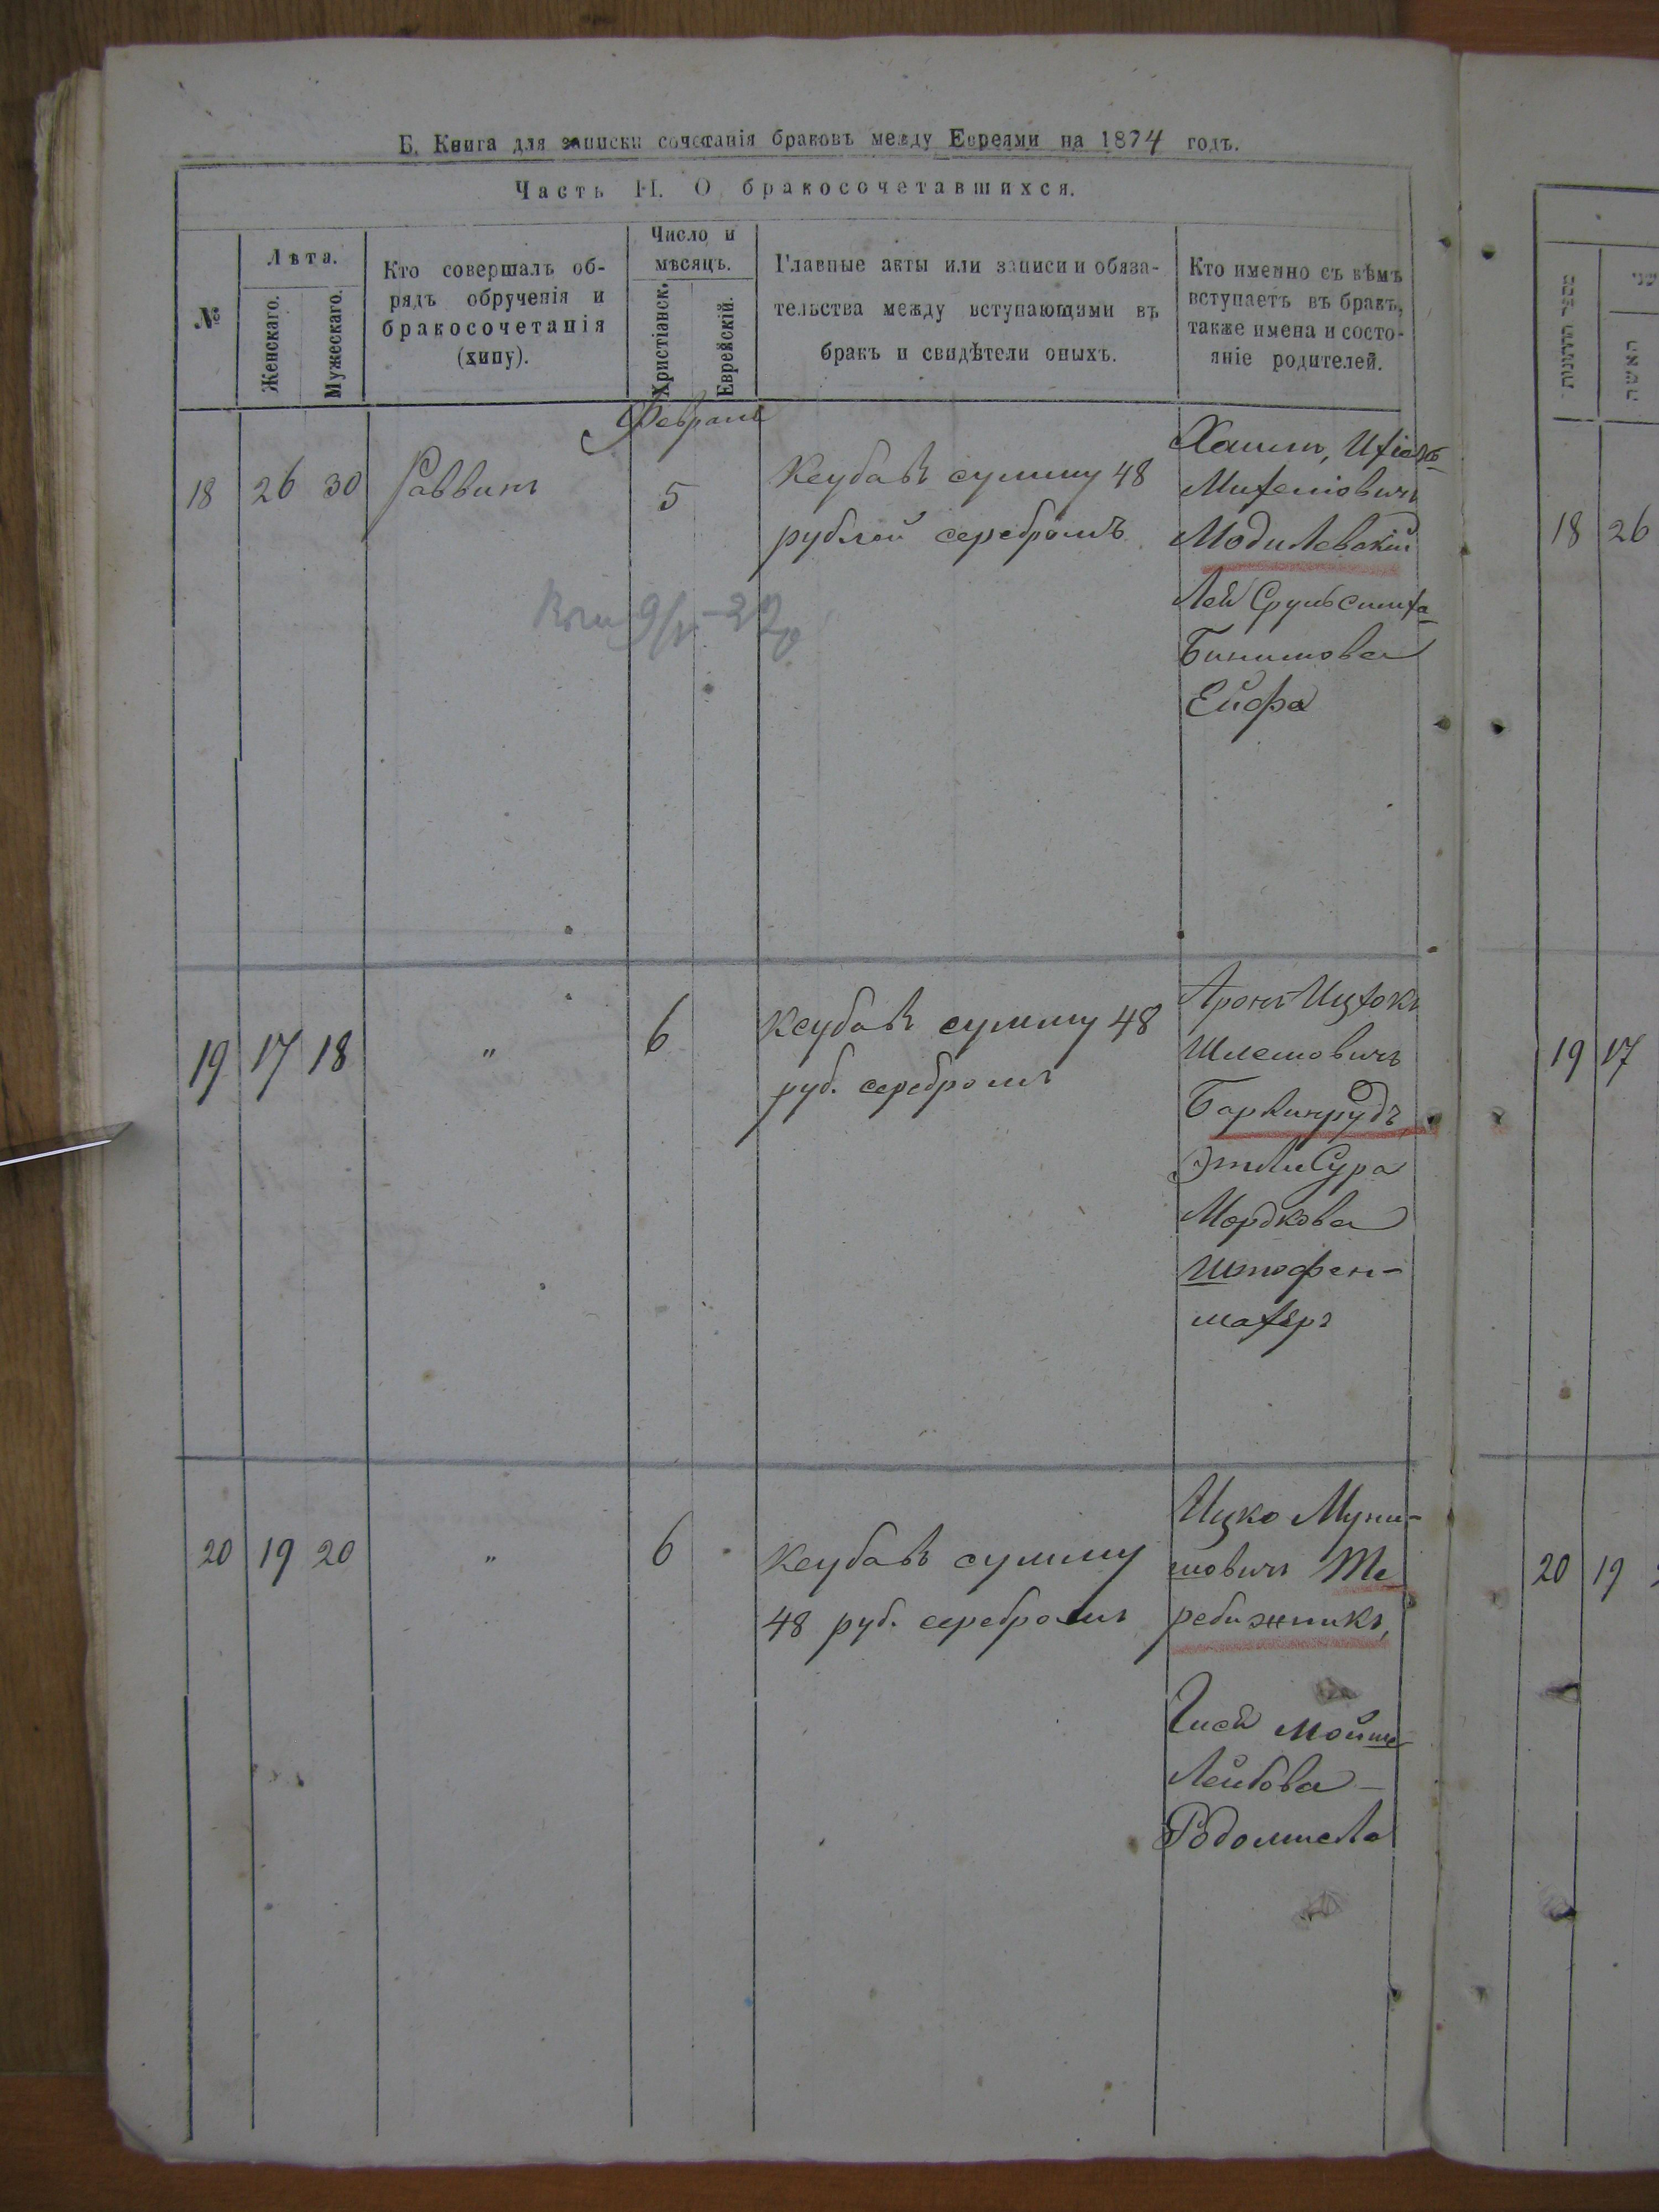 Б. Книга для записки сочетанія браковъ между Евреями на 1874 годъ.
Часть II. О бракосочетавшихся.
№
Лѣта.
Женскаго.
Мужескаго.
Кто совершалъ об-
рядъ обрученія и
бракосочетанія
(хипу).
Число и
мѣсяцъ.
Христіанск.
Еврейскій.
Главные акты или записи и обяза-
тельства между вступающими въ
бракъ и свидѣтели оныхъ.
Кто именно съ кѣмъ
вступаетъ въ бракъ,
также имена и состо-
яніе родителей.
Февраль
18 26 30 Раввинъ 5
Кеуба въ сумму 48
рублей серебромъ
Хаимъ,
Модилевскій
Лея Сруль Симха-
Бинимова
Ейфа
19 17 18 " 6
Кеуба въ сумму 48
руб. серебромъ
Аронъ Ицхокъ
Шлемовичъ
Баркинрудъ
Этли Сура
Мордкова
Штофен-
махеръ
20 19 20 " 6
Кеубавъ сумму
48 руб. серебромъ
Ицко Муни-
шовичъ Те
ребижникъ,
Гися Мойше
Лейбова-
Родомисла
18 26
19 17
20 19
האשה